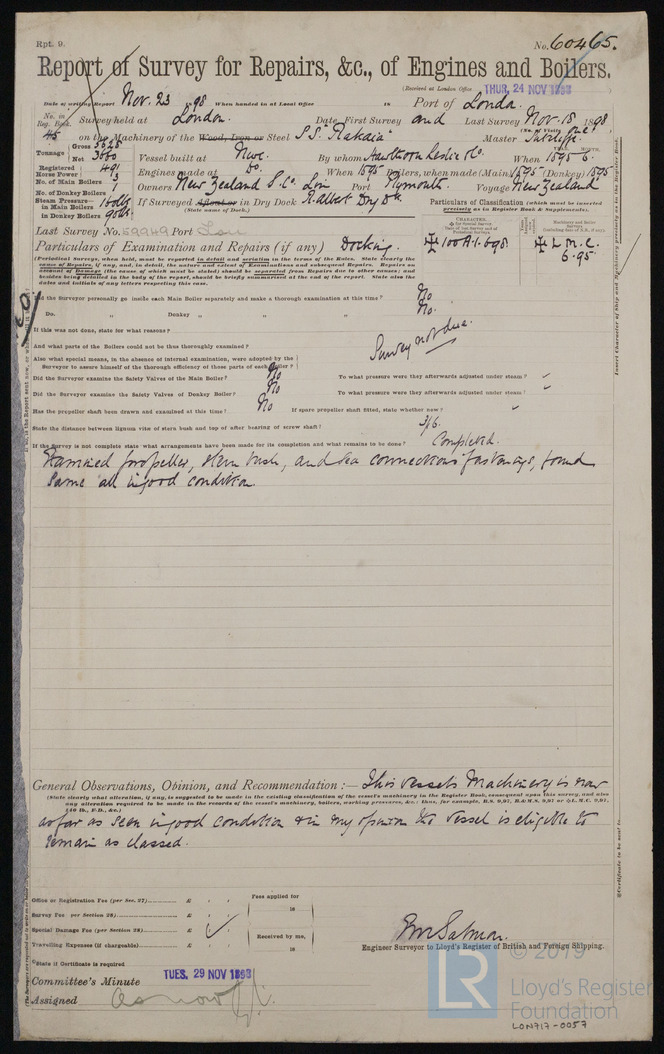 Rpt. 9.
No. 60465.
Report of Survey for Repairs, &c., of Engines and Boilers.
(Received at London Office THUR. 24 NOV 1898
Date of writing Report Nov. 23 98 When handed in at Local Office 18 Port of London.
No. in Reg. Book. Survey held at London. Date, First Survey and Last Survey Nov. 18 1898
(No. of Visits one)
45 on the Machinery of the Wood, Iron or Steel S.S. "Rakaia" Master Sutcliffe
Tonnage Gross 5628
Net 3660
Vessel built at Nwc. By whom Hawthorn Leslie & Co. When 1895-6.
Registered Horse Power 491
Engines made at Do. When 1895 Boilers, when made (Main) 1895 (Donkey) 1895
No. of Main Boilers 3
No. of Donkey Boilers 1
Owners New Zealand S. Co. Lim Port Plymouth. Voyage New Zealand
Steam Pressure in Main Boilers 160 lbs
in Donkey Boilers 90 lbs
If Surveyed Afloat or in Dry Dock R. Albert Dry Dk.
(State name of Dock.)
Particulars of Classification (which must be inserted precisely as in Register Book & Supplements).
Last Survey No. 59949 Port Lon
100A.1. 6.98
L.M.C. 6.95
Particulars of Examination and Repairs (if any) Docking.
(Periodical Surveys, when held, must be reported in detail and seriatim in the terms of the Rules. State clearly the
name of Repairs, if any, and, in detail, the nature and extent of Examinations and subsequent Repairs. Repairs on
account of Damage (the cause of which must be stated) should be separated from Repairs due to other causes; and
besides being detailed in the body of the report, should be briefly summarised at the end of the report. State also the
dates and initials of any letters respecting this case.
Did the Surveyor personally go inside each Main Boiler separately and make a thorough examination at this time? No
Do. " Donkey " " " No.
If this was not done, state for what reasons?
And what parts of the Boilers could not be thus thoroughly examined? Survey not due.
Also what special means, in the absence of internal examination, were adopted by the
Surveyor to assure himself of the thorough efficiency of those parts of each Boiler?
Did the Surveyor examine the Safety Valves of the Main Boiler? No To what pressure were they afterwards adjusted under steam? "
Did the Surveyor examine the Safety Valves of Donkey Boiler? No To what pressure were they afterwards adjusted under steam? "
Has the propeller shaft been drawn and examined at this time? No If spare propeller shaft fitted, state whether new? "
State the distance between lignum vitæ of stern bush and top of after bearing of screw shaft? 3/16.
If the Survey is not complete state what arrangements have been made for its completion and what remains to be done? Completed.
Examined propeller, stern bush, and sea connections fastenings, found
same all in good condition.
General Observations, Opinion, and Recommendation:— This vessels Machinery is now
(State clearly what alteration, if any, is suggested to be made in the existing classification of the vessel's machinery in the Register Book, consequent upon this survey, and also
any alteration required to be made in the records of the vessel's machinery, boilers, working pressures, &c.: thus, for example, B.S. 9,97, B.&M.S. 9,97 or L.M.C. 9,97,
140 lb., F.D., &c.)
as far as seen in good condition & in my opinion the vessel is eligible to
remain as classed.
Office or Registration Fee (per Sec. 27) £
Survey Fee per Section 28) £
Special Damage Fee (per Section 28) £
Travelling Expenses (if chargeable) £
Fees applied for
18
Received by me,
18
Engineer Surveyor to Lloyd's Register of British and Foreign Shipping.
State if Certificate is required
Committee's Minute TUES. 29 NOV 1898
Assigned As now
LR
© 2019
Lloyd's Register
Foundation
LON717-0057